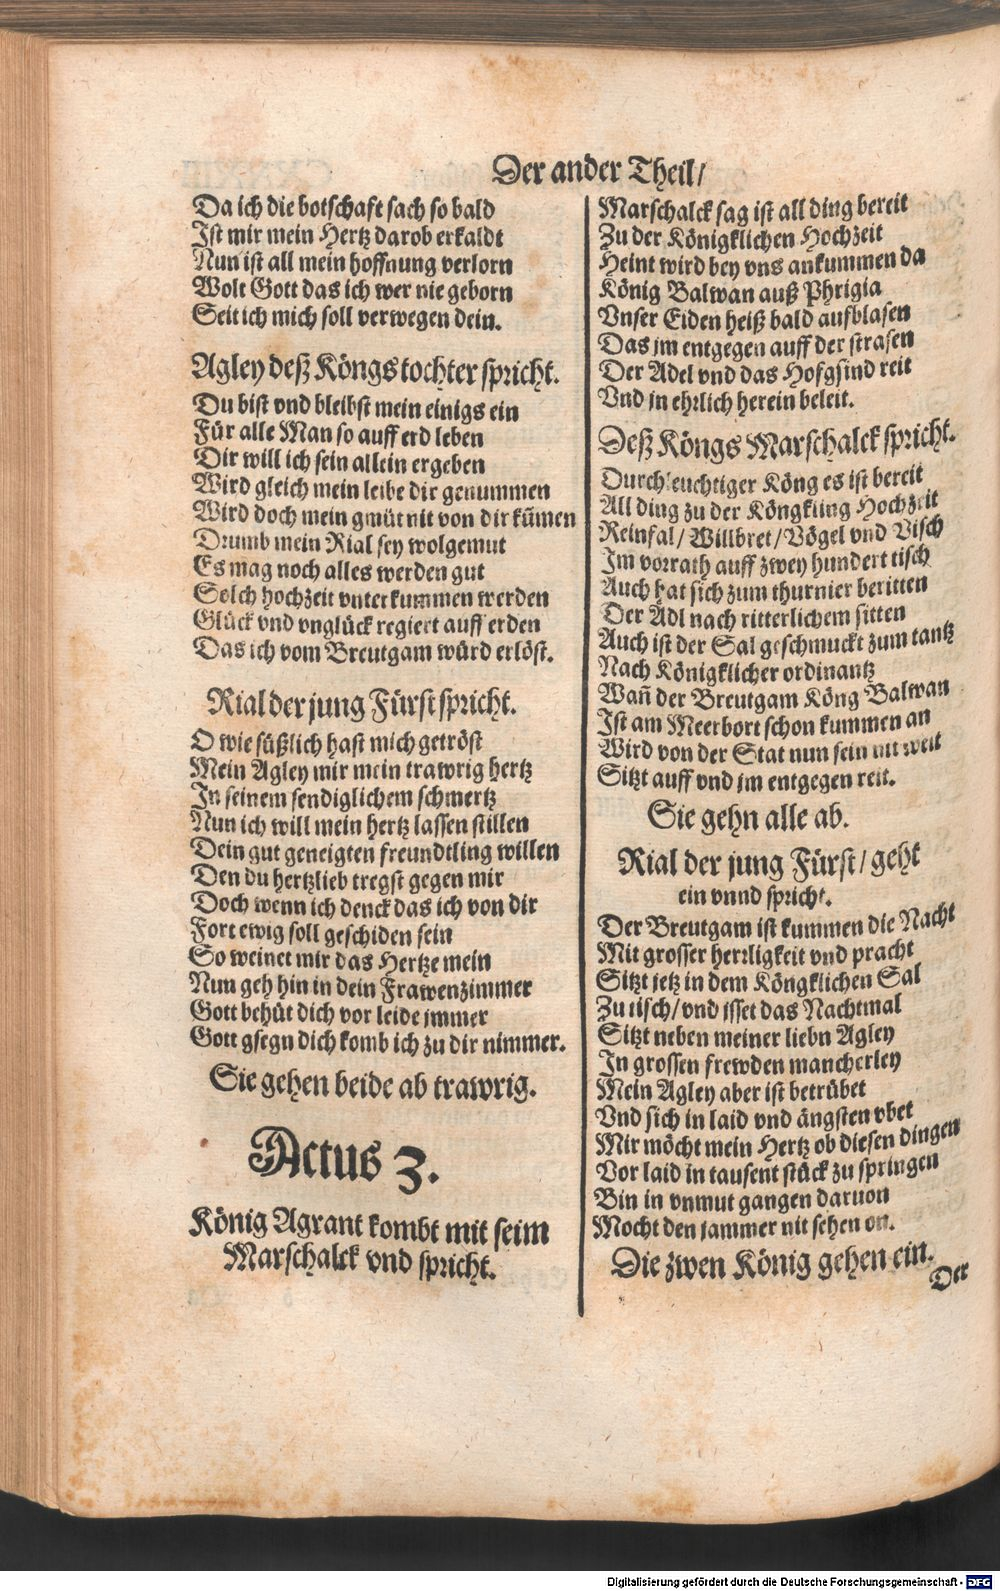 Der ander Theil/
Da ich die botschaft sach so bald
Ist mir mein Hertz darob erkaldt
Nun ist all mein hoffnung verlorn
Wolt Gott das ich wer nie geborn
Seit ich mich soll verwegen dein.
Agley deß Köngs tochter spricht.
Du bist vnd bleibst mein einigs ein
Für alle Man so auff erd leben
Dir will ich sein allein ergeben
Wird gleich mein leibe dir genummen
Wird doch mein gmüt nit von dir kům̃en
Drumb mein Rial sey wolgemut
Es mag noch alles werden gut
Solch hochzeit vnterkummen werden
Glück vnd vnglück regiert auff erden
Das ich vom Breutgam würd erlöst.
Rial der jung Fürst spricht.
O wie süßlich hast mich getröst
Mein Agley mir mein trawrig hertz
In seinem sendiglichem schmertz
Nun ich will mein hertz lassen stillen
Dein gut geneigten freundtling willen
Den du hertzlieb tregst gegen mir
Doch wenn ich denck das ich von dir
Fort ewig soll geschiden sein
So weinet mir das Hertze mein
Nun geh hin in dein Frawenzimmer
Gott behüt dich vor leide jmmer
Gott gsegn dich komb ich zu dir nimmer.
Sie gehen beide ab trawrig.
Actus 3.
König Agrant kombt mit seim
Marschalck vnd spricht.
Marschalck sag ist all ding bereit
Zu der Königklichen Hochzeit
Heint wird bey vns ankummen da
König Balwan auß Phrigia
Vnser Eiden heiß bald aufblasen
Das jm entgegen auff der strasen
Der Adel vnd das Hofgsind reit
Vnd jn ehrlich herein beleit.
Deß Köngs Marschalck spricht.
Durchleuchtiger Köng es ist bereit
All ding zu der Köngkling Hochzeit
Reinfal/ Willbret/ Vögel vnd Visch
Im vorrath auff zwey hundert tisch
Auch hat sich zum thurnier beritten
Der Adl nach ritterlichem sitten
Auch ist der Sal geschmuckt zum tantz
Nach Königklicher ordinantz
Wañ der Breutgam Köng Balwan
Ist am Meerbort schon kummen an
Wird von der Stat nun sein nit weit
Sitzt auff vnd jm entgegen reit.
Sie gehn alle ab.
Rial der jung Fürst/ geht
ein vnnd spricht.
Der Breutgam ist kummen die Nacht
Mit grosser herrligkeit vnd pracht
Sitzt jetz in dem Köngklichen Sal
Zu tisch/ vnd jsset das Nachtmal
Sitzt neben meiner liebn Agley
In grossen frewden mancherley
Mein Agley aber ist betrübet
Vnd sich in laid vnd ängsten vbet
Mir möcht mein Hertz ob diesen dingen
Vor laid in tausent stück zu springen
Bin in vnmut gangen daruon
Mocht den jammer nit sehen on.
Die zwen König gehen ein.
Der
Digitalisierung gefördert durch die Deutsche Forschungsgemeinschaft - DFG